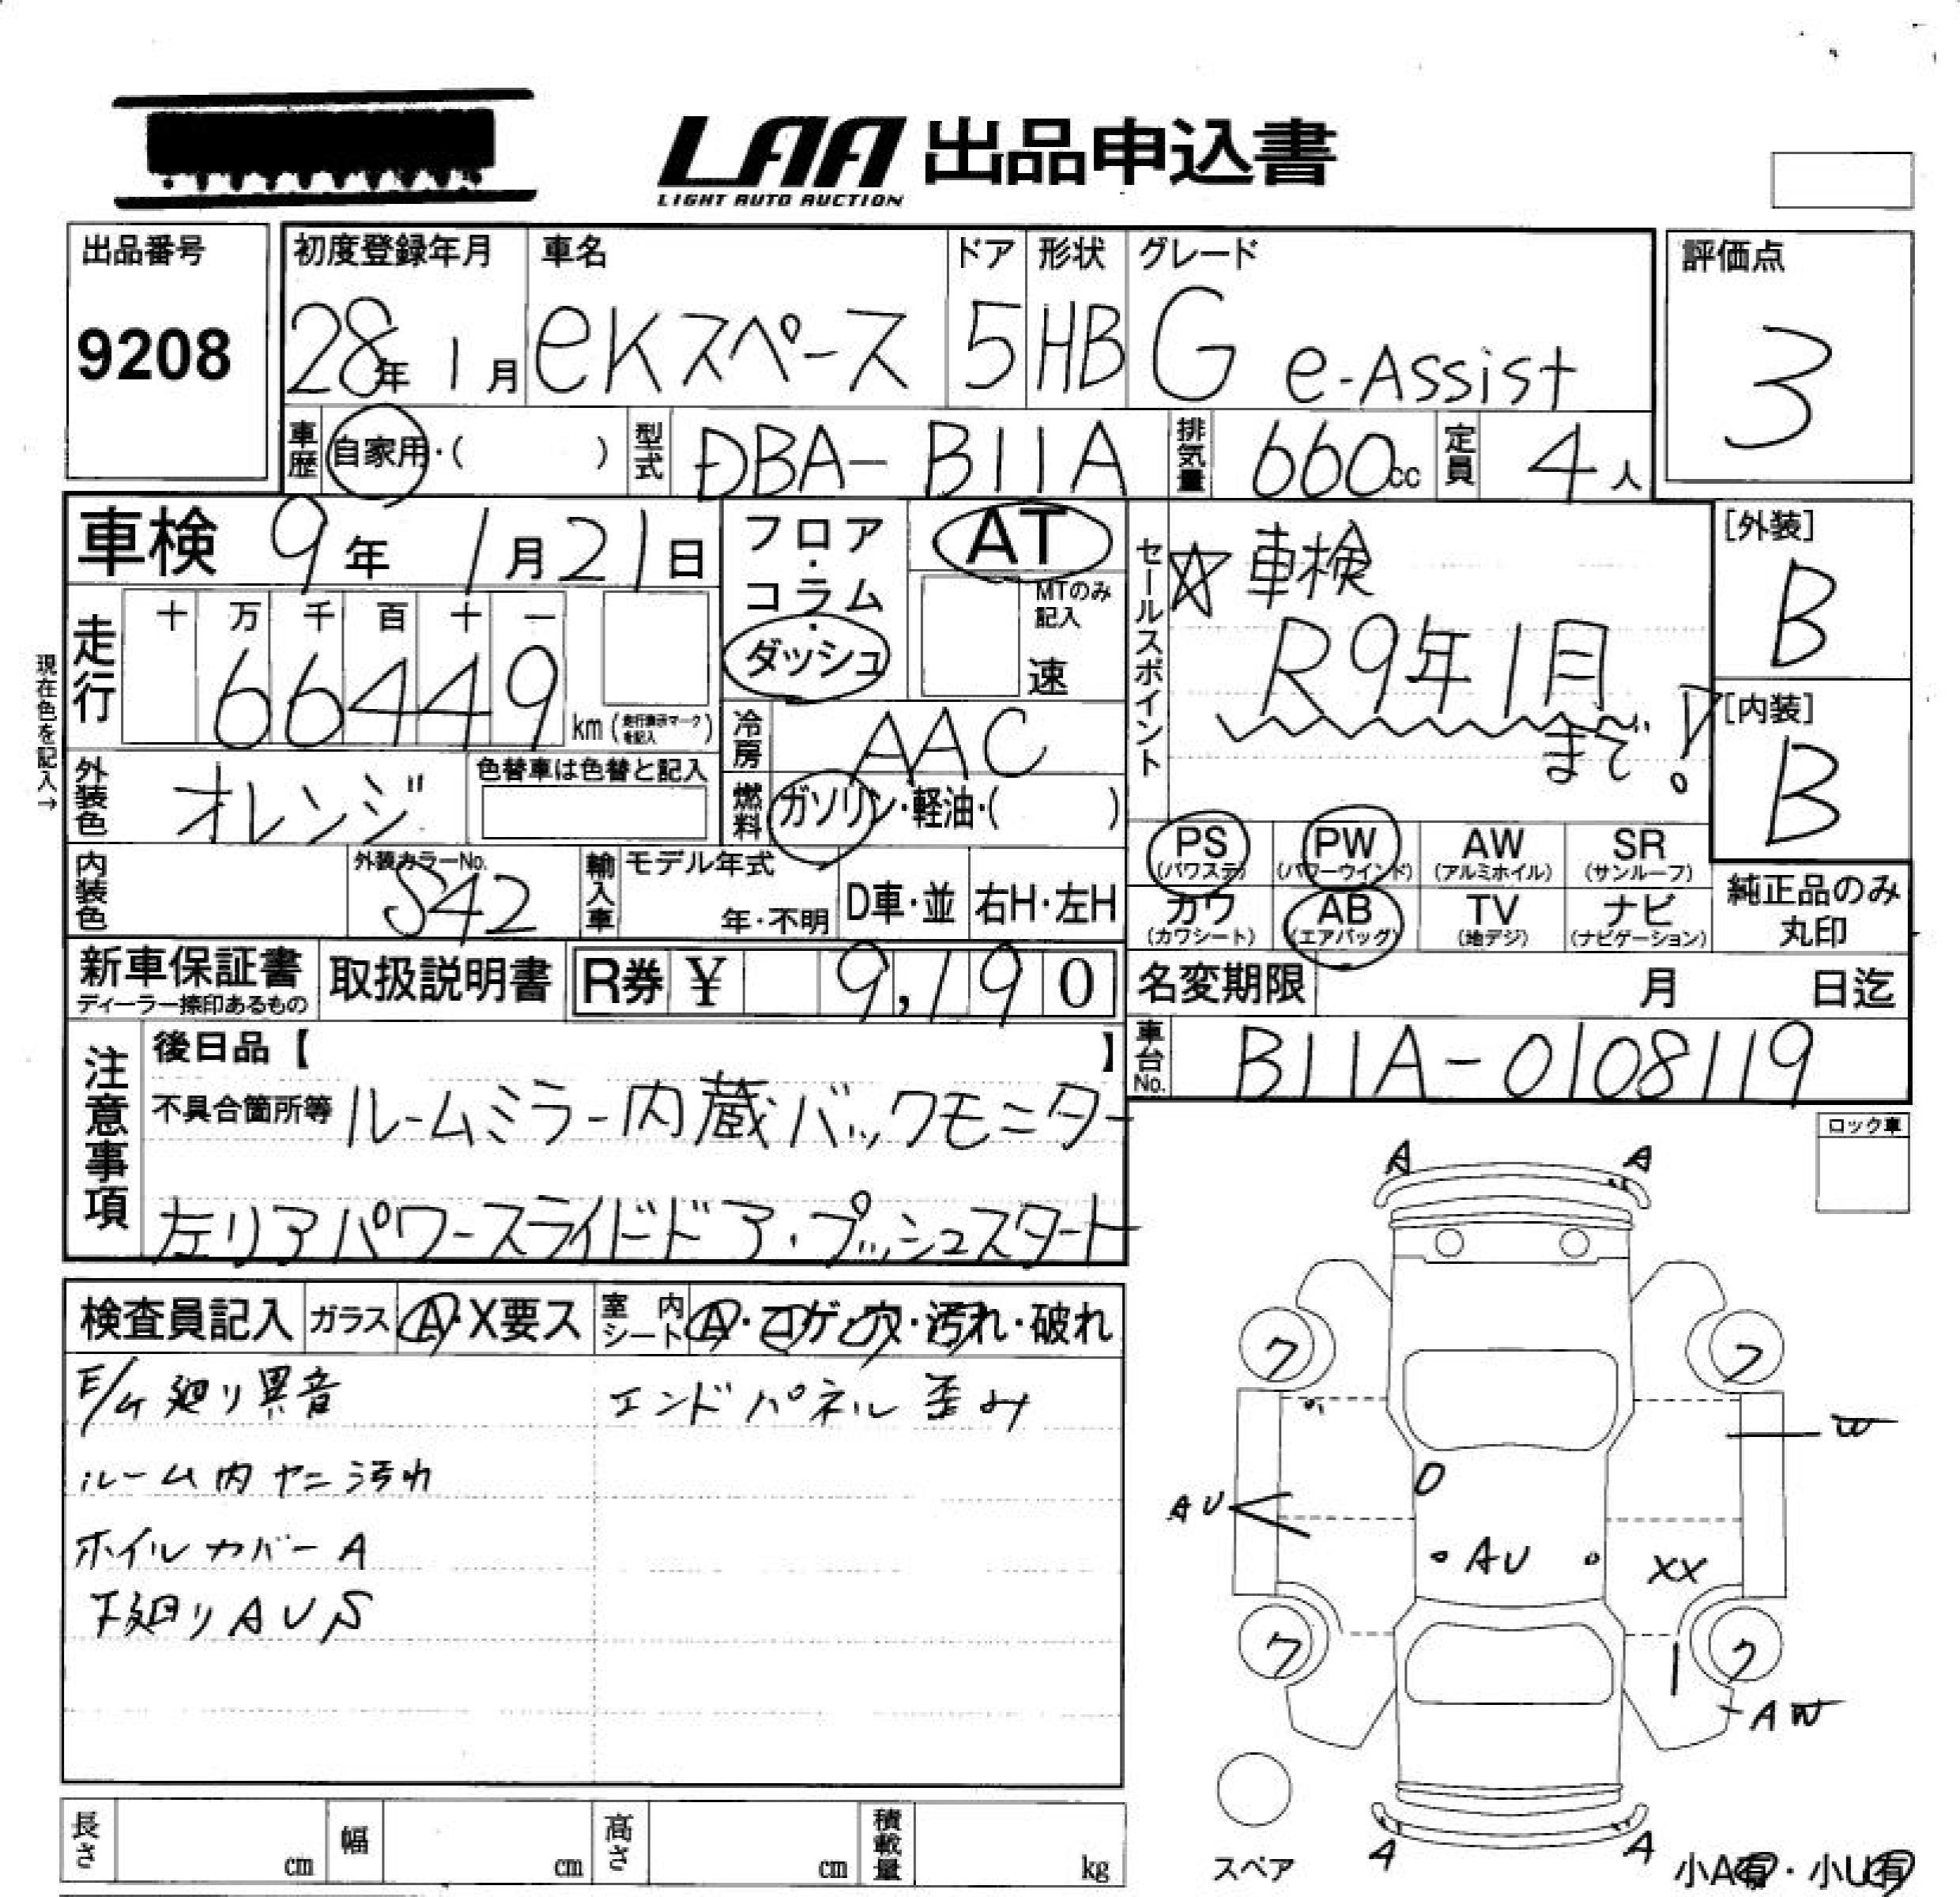 LAA 出品申込書
LIGHT AUTO AUCTION
出品番号
9208
初度登録年月
28年 1月
車名
eKスペース
ドア
5
形状
HB
グレード
G e-Assist
評価点
3
車歴
自家用・( )
型式
DBA-B11A
排気量
660cc
定員
4人
車検 9年 1月21日
フロア・コラム・ダッシュ
AT
MTのみ記入
速
セールスポイント
☆車検
R9年1月
まで!
[外装]
B
[内装]
B
現在色を記入→
走行
十 万 千 百 十 一
66449
km (走行表示マークを記入)
冷房
AAC
外装色
オレンジ
色替車は色替と記入
燃料
ガソリン・軽油・( )
PS
(パワステ)
PW
(パワーウインド)
AW
(アルミホイル)
SR
(サンルーフ)
カワ
(カワシート)
AB
(エアバッグ)
TV
(地デジ)
ナビ
(ナビゲーション)
純正品のみ
丸印
内装色
外装カラーNo.
S42
輸入車
モデル年式
年・不明
D車・並
右H・左H
新車保証書
ディーラー捺印あるもの
取扱説明書
R券 ¥ 9,190
名変期限
月 日迄
車台No.
B11A-0108119
注意事項
後日品【 】
不具合箇所等 ルームミラー内蔵バックモニター
左リアパワースライドドア・プッシュスタート
ロック車
検査員記入
ガラス
A・X要ス
室内シート
A・コゲ・穴・汚れ・破れ
E/G廻り異音
エンドパネル歪み
ルーム内ヤニ汚れ
ホイルカバーA
下廻りAUS
A A
フ フ
W
AU
AU
XX
フ フ
AW
A A
スペア
小A有・小U有
長さ
cm
幅
cm
高さ
cm
積載量
kg